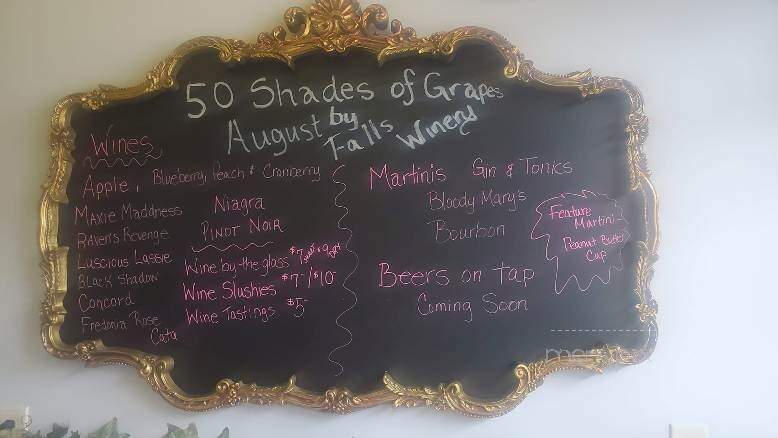 50 Shades of Grapes
August by
Falls Winery
Wines
Apple, Blueberry, Peach & Cranberry
Maxie Maddness
Niagra
Raven's Revenge
Pinot Noir
Luscious Lassie
Black Shadow
Concord
Fredonia Rose
Cata
Wine by the glass $7
Wine Slushies $7-/$10
Wine Tastings $5-
Martinis Gin & Tonics
Bloody Mary's
Bourbon
Feature
Martini
Peanut Butter
Cup
Beers on tap
Coming Soon